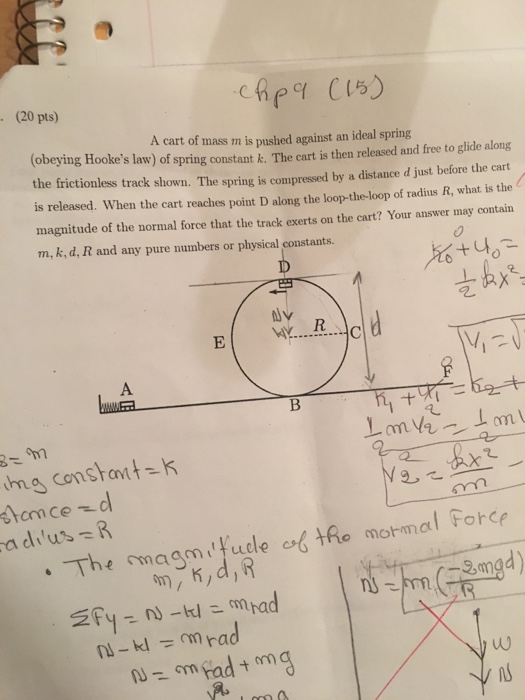 chp9 (15)
. (20 pts)
A cart of mass m is pushed against an ideal spring
(obeying Hooke's law) of spring constant k. The cart is then released and free to glide along
the frictionless track shown. The spring is compressed by a distance d just before the cart
is released. When the cart reaches point D along the loop-the-loop of radius R, what is the
magnitude of the normal force that the track exerts on the cart? Your answer may contain
m, k, d, R and any pure numbers or physical constants.
0
K0 + U0 =
1/2 kx² =
D
N
W
R
C
d
E
V1 = √
F
A
B
K1 + U1 = K2 +
1/2 m V2² = 1/2 m V
V2² = kx²/m -
s = m
ing constant = K
stance = d
radius = R
• The magnitude of the normal Force
m, K, d, R
ΣFy = N - W = mrad
N - W = mrad
N = mrad + mg
N = m(-2mgd/R)
W
N